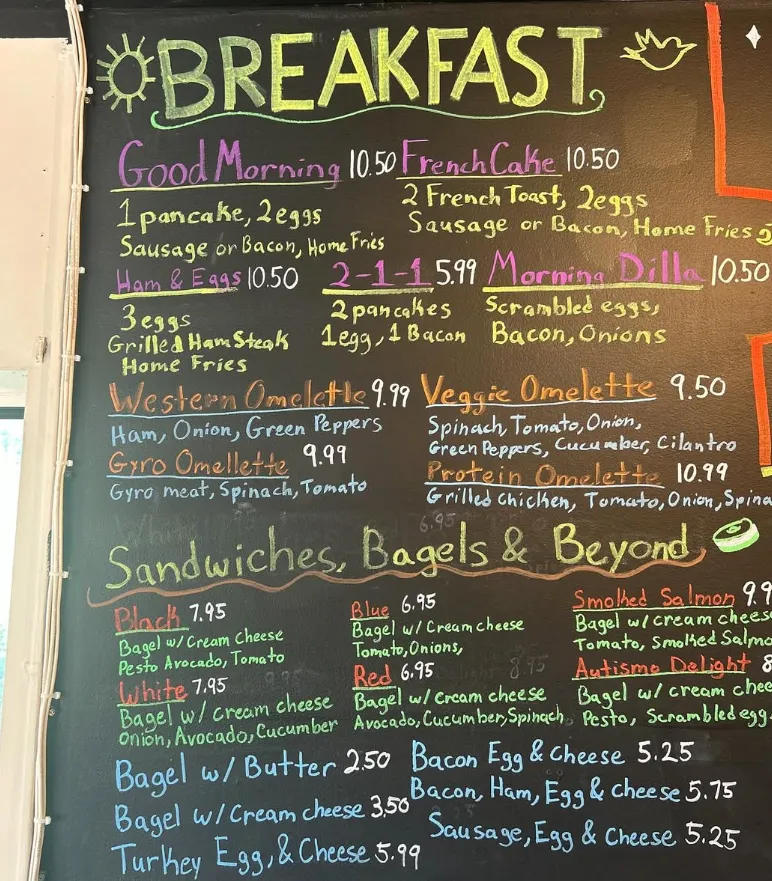 BREAKFAST
Good Morning 10.50
1 pancake, 2 eggs
Sausage or Bacon, Home Fries
French Cake 10.50
2 French Toast, 2 eggs
Sausage or Bacon, Home Fries
Ham & Eggs 10.50
3 eggs
Grilled Ham Steak
Home Fries
2-1-1 5.99
2 pancakes
1 egg, 1 Bacon
Morning Dilla 10.50
Scrambled eggs,
Bacon, Onions
Western Omelette 9.99
Ham, Onion, Green Peppers
Veggie Omelette 9.50
Spinach, Tomato, Onion,
Green Peppers, Cucumber, Cilantro
Gyro Omellette 9.99
Gyro meat, Spinach, Tomato
Protein Omelette 10.99
Grilled Chicken, Tomato, Onion, Spina
6.95
Sandwiches, Bagels & Beyond
Black 7.95
Bagel w/ Cream cheese
Pesto Avocado, Tomato
Blue 6.95
Bagel w/ Cream cheese
Tomato, Onions,
Smolked Salmon 9.9
Bagel w/ cream cheese
Tomato, Smolked Salmo
White 7.95
Bagel w/ cream cheese
Onion, Avocado, Cucumber
Red 6.95
8.95
Bagel w/ Cream cheese
Avocado, Cucumber, Spinach
Autismo Delight 8
Bagel w/ cream chee
Pesto, Scrambled egg
Bagel w/ Butter 2.50
Bagel w/ Cream cheese 3.50
Turkey Egg, & Cheese 5.99
Bacon Egg & Cheese 5.25
Bacon, Ham, Egg & cheese 5.75
Sausage, Egg & Cheese 5.25